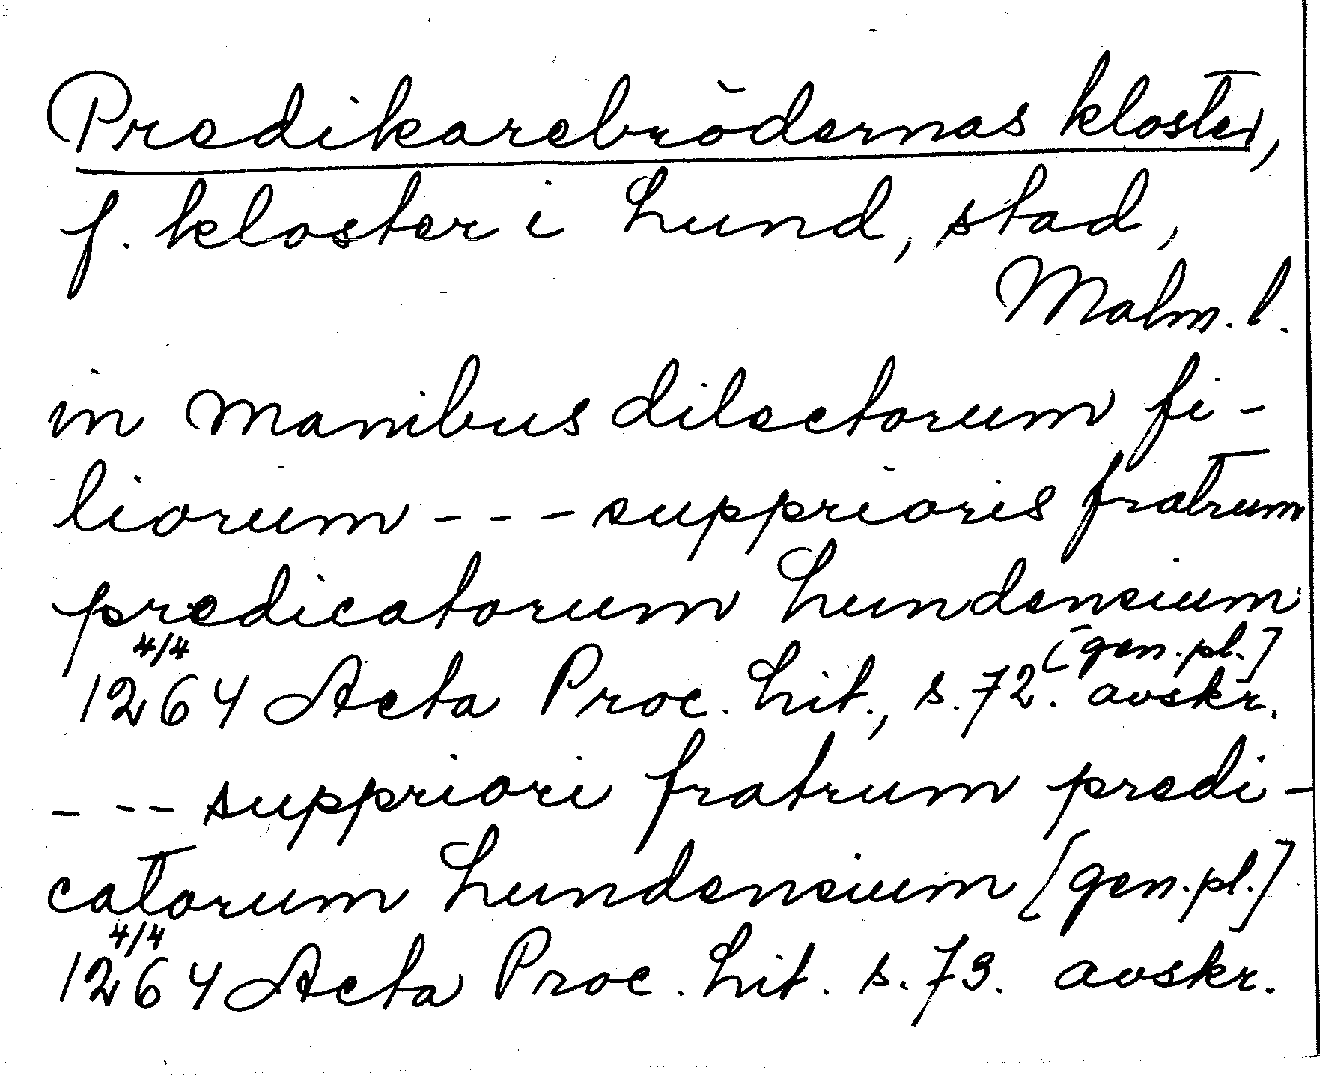 Predikarebrödernas kloster,
f. kloster i Lund, stad,
Malm. l.
in manibus dilectorum fi-
liorum --- supprioris fratrum
predicatorum Lundensium
[gen. pl.]
4/4
1264 Acta Proc. Lit., s. 72. avskr.
--- suppriori fratrum predi-
catorum Lundensium [gen. pl.]
4/4
1264 Acta Proc. Lit. s. 73. avskr.